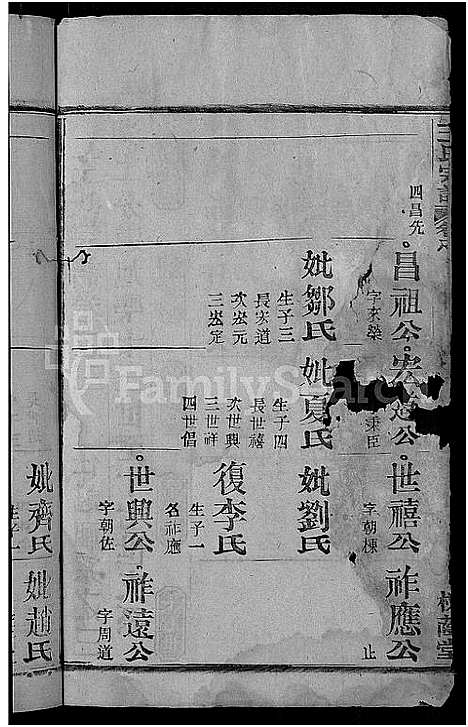 王氏宗譜
四昌先
昌祖公
字來榮
宏道公
秉臣
世禧公
字朝棟
祚應公
止
妣鄒氏
生子三
長宏道
次宏元
三宏定
妣夏氏
生子四
長世禧
次世興
三世祥
四世倡
妣劉氏
復李氏
生子一
名祚應
世興公
字朝佐
祚遠公
字周道
妣齊氏
妣趙氏
堂
FamilySearch